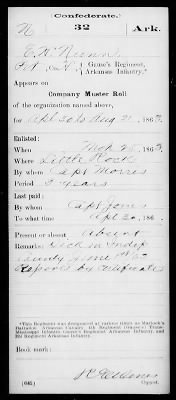 Confederate.
N 32 Ark.
Gause's Regiment,
Arkansas Infantry.*
Appears on
Company Muster Roll
of the organization named above,
for Apl 30 to Aug 31, 1863.
Enlisted:
When 25, 186
Where Little Rock
By whom Capt Morris
Period 3 years
Last paid:
By whom Capt Jones
To what time Apl 30, 186
Present or absent Absent
Remarks: Sick in Indep
County since
Reports by Certificates
*This Regiment was designated at various times as
Battalion Arkansas Cavalry, 4th Regiment
Mississippi Infantry, Gause's Regiment Arkansas Infantry, and
32d Regiment Arkansas Infantry.
Book mark:
(645) Copyist.